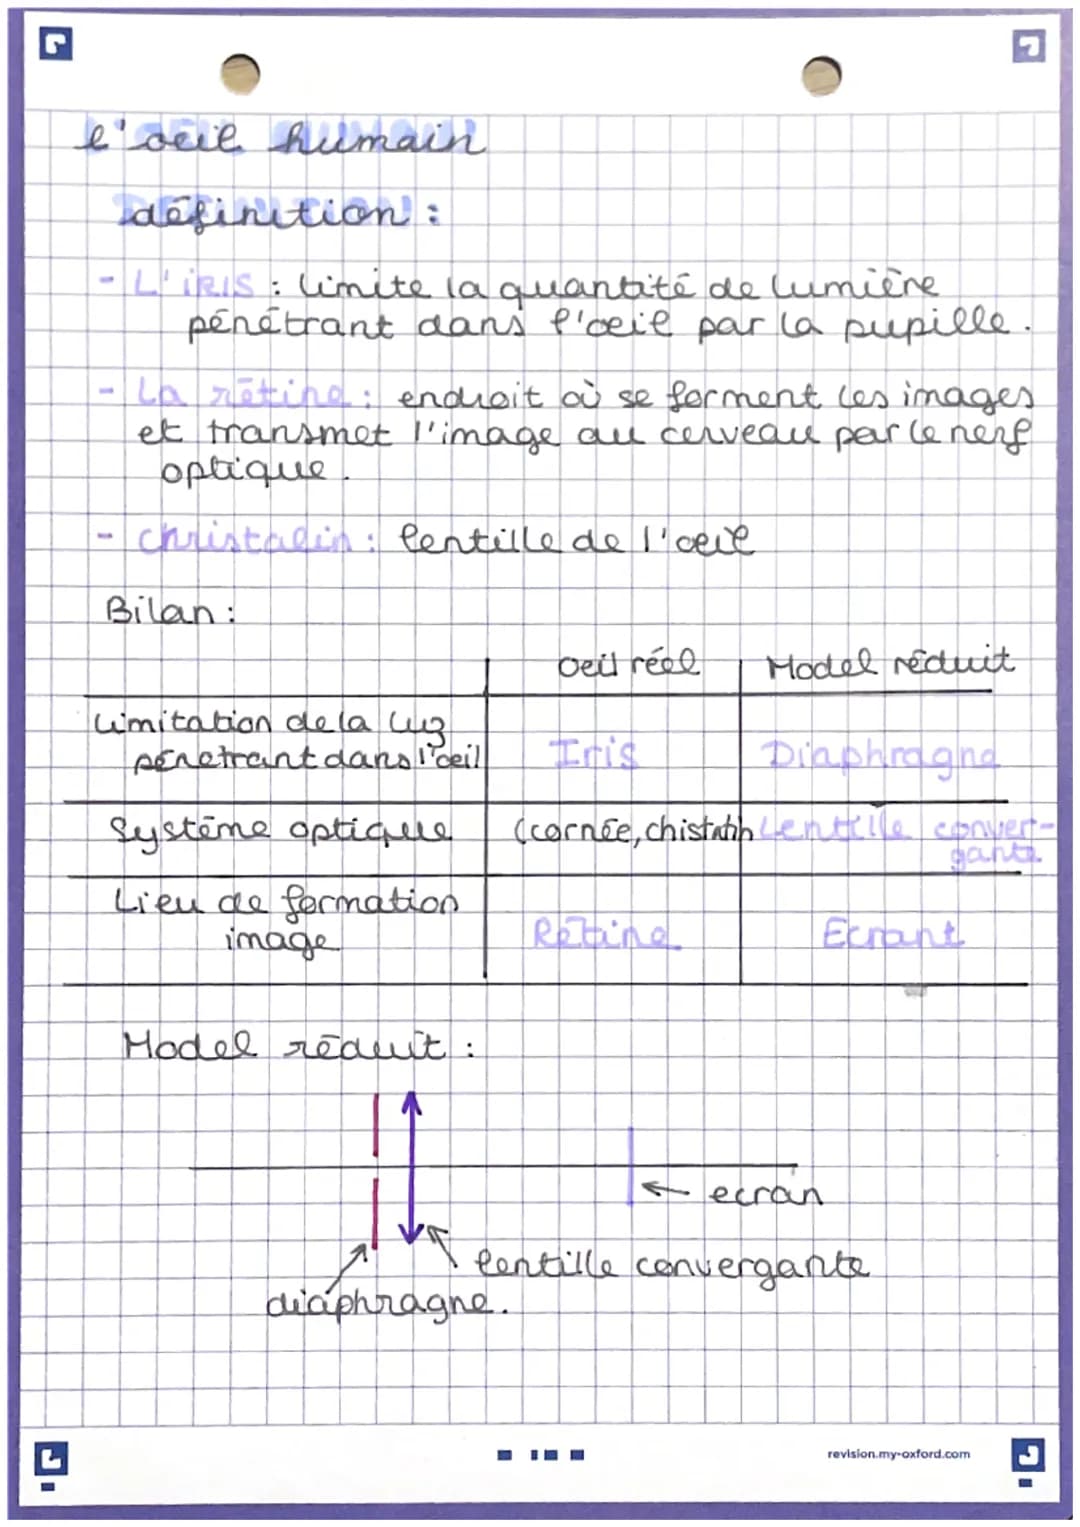 l'oeil humain
définition :
- L'iRIS : limite la quantité de lumière
pénétrant dans l'oeil par la pupille.
- La rétine : endroit où se forment les images
et transmet l'image au cerveau par le nerf
optique.
- christalin : lentille de l'oeil
Bilan :
Oeil réel Model réduit
Limitation de la
pénetrant dans l'oeil Iris Diaphragne
Système optique (cornée, Lentille conver-
gante
Lieu de formation
image Rétine Ecrant
Model réduit :
ecran
lentille convergante
diaphragne.
revision.my-oxford.com